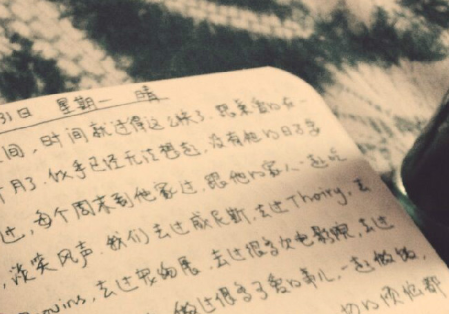 31日 星期一 晴
间,时间就过得这么快了.跟亲爱的在一
个月了.似乎已经无法想起,没有他的日子是
过,每个周末到他家过.跟他的家人一起吃
,谈笑风声.我们去过威尼斯,去过Thoiry,去
ovins,去过宠物展,去过很多次电影院,去过
做过很多可爱的事儿,一起做饭,
都